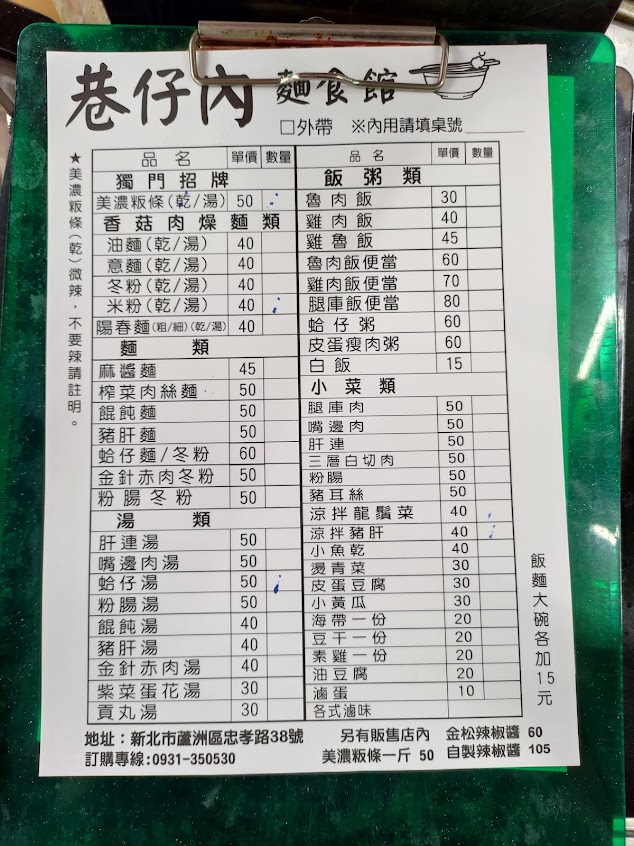 巷仔內 麵食館
□外帶 ※內用請填桌號
★美濃粄條(乾)微辣，不要辣請註明。
品名 單價 數量
獨門招牌
美濃粄條(乾/湯) 50
香菇肉燥麵類
油麵(乾/湯) 40
意麵(乾/湯) 40
冬粉(乾/湯) 40
米粉(乾/湯) 40
陽春麵(粗/細)(乾/湯) 40
麵類
麻醬麵 45
榨菜肉絲麵 50
餛飩麵 50
豬肝麵 50
蛤仔麵/冬粉 60
金針赤肉冬粉 50
粉腸冬粉 50
湯類
肝連湯 50
嘴邊肉湯 50
蛤仔湯 50
粉腸湯 50
餛飩湯 40
豬肝湯 40
金針赤肉湯 40
紫菜蛋花湯 30
貢丸湯 30
品名 單價 數量
飯粥類
魯肉飯 30
雞肉飯 40
雞魯飯 45
魯肉飯便當 60
雞肉飯便當 70
腿庫飯便當 80
蛤仔粥 60
皮蛋瘦肉粥 60
白飯 15
小菜類
腿庫肉 50
嘴邊肉 50
肝連 50
三層白切肉 50
粉腸 50
豬耳絲 50
涼拌龍鬚菜 40
涼拌豬肝 40
小魚乾 40
燙青菜 30
皮蛋豆腐 30
小黃瓜 30
海帶一份 20
豆干一份 20
素雞一份 20
油豆腐 20
滷蛋 10
各式滷味
飯麵大碗各加15元
地址：新北市蘆洲區忠孝路38號
訂購專線:0931-350530
另有販售店內 金松辣椒醬 60
美濃粄條一斤 50 自製辣椒醬 105